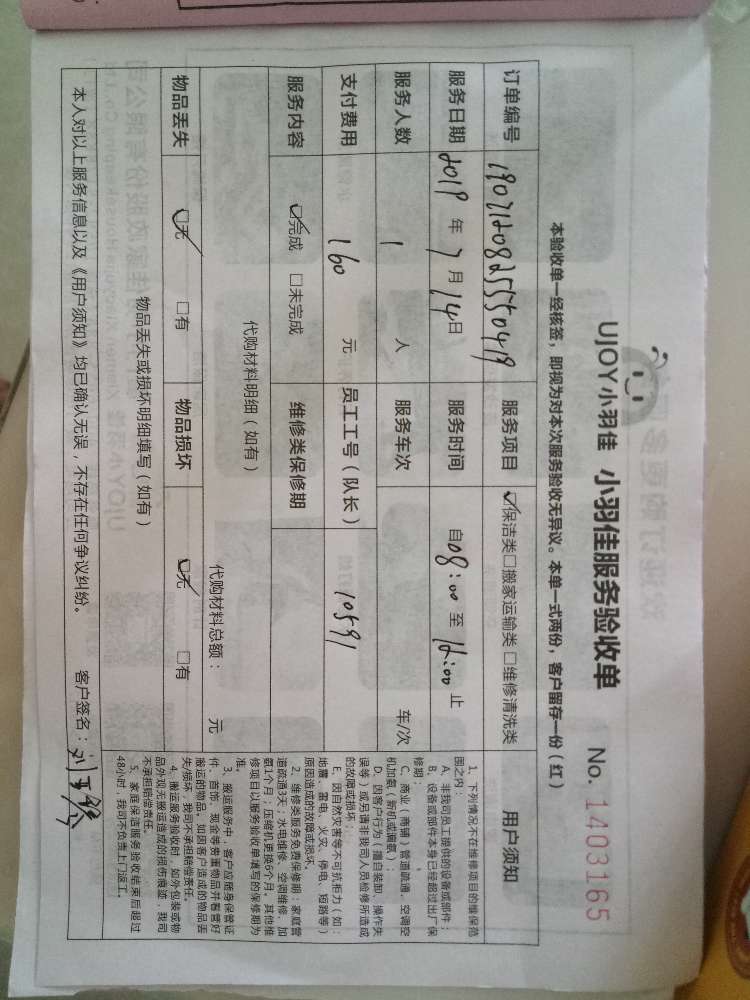 UJOY小羽佳 小羽佳服务验收单 No. 1403165
本验收单一经核签，即视为对本次服务验收无异议。本单一式两份，客户留存一份（红）
订单编号 1907120825550419 服务项目 ☑保洁类□搬家运输类□维修清洗类 用户须知
服务日期 2019 年 7 月 14 日 服务时间 自 08:00 至 12:00 止
服务人数 1 人 服务车次 车/次
支付费用 160 元 员工工号（队长） 10591
服务内容 ☑完成 □未完成 维修类保修期
代购材料明细（如有）
代购材料总额： 元
物品丢失 ☑无 □有 物品损坏 ☑无 □有
物品丢失或损坏明细填写（如有）
本人对以上服务信息以及《用户须知》均已确认无误，不存在任何争议纠纷。 客户签名：
1、下列情况不在维修项目的维保范
围之内：
A、非我司员工提供的设备或部件；
B、设备或部件本身已经超过出厂保
修期；
C、商业（商铺）管道疏通、空调空
机加氨（新机或抽氨）；
D、因客户行为（擅自装卸、操作失
误等）或另请非我司人员检修所造成
的故障或损坏；
E、因自然灾害等不可抗拒力（如：
地震、雷电、火灾、停电、短路等）
原因造成的故障或损坏。
2、维修类服务免费保修期：家庭管
道疏通3天；水电维修、空调维修、加
氨1个月；压缩机更换6个月，其他维
修项目以服务验收单填写的保修期为
准。
3、搬运服务中，客户应随身保管证
件、首饰、现金等贵重物品并看管好
搬运的物品。如因客户造成的物品丢
失/损坏，我司不承担赔偿责任。
4、搬运服务验收时，如外包装或物
品外观无搬运造成的损伤痕迹，我司
不承担赔偿责任。
5、家庭保洁服务验收结束后超过
48小时，我司不负责上门返工。